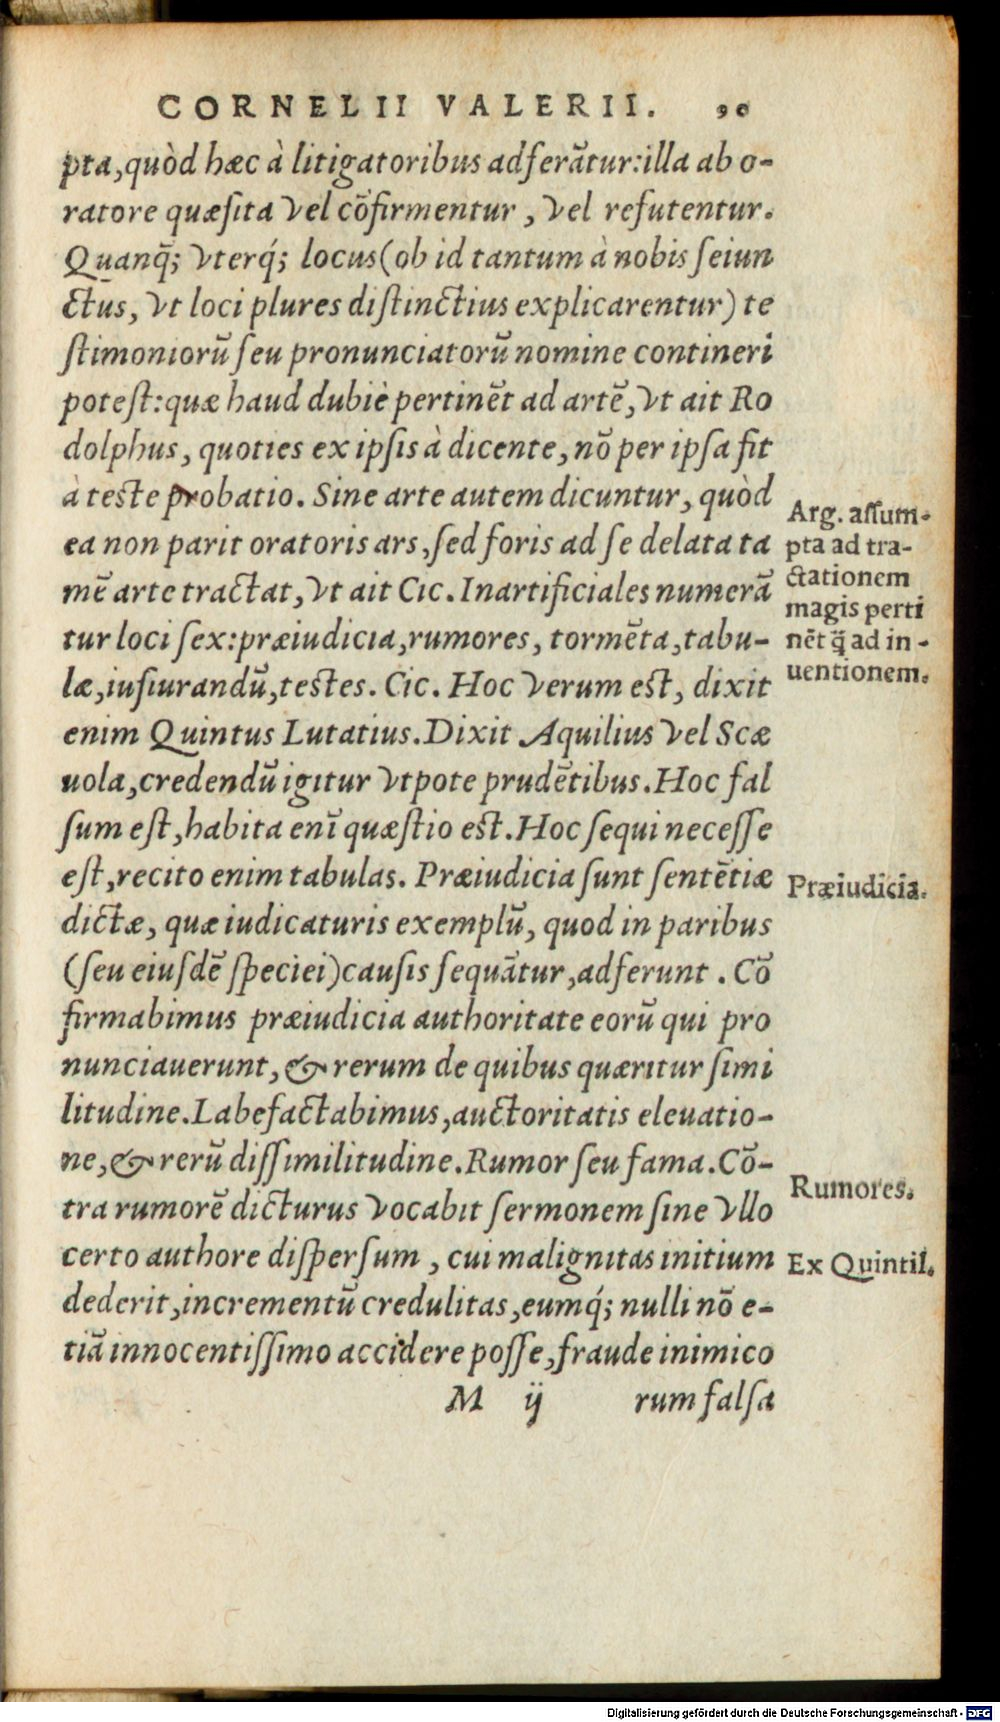 CORNELII VALERII. 90
pta, quòd hæc à litigatoribus adferãtur: illa ab o-
ratore quæsita vel cõfirmentur, vel refutentur.
Quanq̃; vterq́; locus (ob id tantum à nobis seiun
ctus, vt loci plures distinctius explicarentur) te
stimoniorũ seu pronunciatorũ nomine contineri
potest: quæ haud dubiè pertinẽt ad artẽ, vt ait Ro
dolphus, quoties ex ipsis à dicente, nõ per ipsa fit
à teste probatio. Sine arte autem dicuntur, quòd
ea non parit oratoris ars, sed foris ad se delata ta
mẽ arte tractat, vt ait Cic. Inartificiales numerã
tur loci sex: præiudicia, rumores, tormẽta, tabu-
læ, iusiurandũ, testes. Cic. Hoc verum est, dixit
enim Quintus Lutatius. Dixit Aquilius vel Scæ
uola, credendũ igitur vtpote prudẽtibus. Hoc fal
sum est, habita enĩ quæstio est. Hoc sequi necesse
est, recito enim tabulas. Præiudicia sunt sentẽtiæ
dictæ, quæ iudicaturis exemplũ, quod in paribus
(seu eiusdẽ speciei) causis sequãtur, adferunt. Cõ
firmabimus præiudicia authoritate eorũ qui pro
nunciauerunt, & rerum de quibus quæritur simi
litudine. Labefactabimus, auctoritatis eleuatio-
ne, & rerũ dissimilitudine. Rumor seu fama. Cõ-
tra rumorẽ dicturus vocabit sermonem sine vllo
certo authore dispersum, cui malignitas initium
dederit, incrementũ credulitas, eumq́; nulli nõ e-
tiã innocentissimo accidere posse, fraude inimico
M ij rum falsa
Arg. assum-
pta ad tra-
ctationem
magis perti
nẽt q̃ ad in-
uentionem.
Præiudicia.
Rumores.
Ex Quintil.
Digitalisierung gefördert durch die Deutsche Forschungsgemeinschaft - DFG